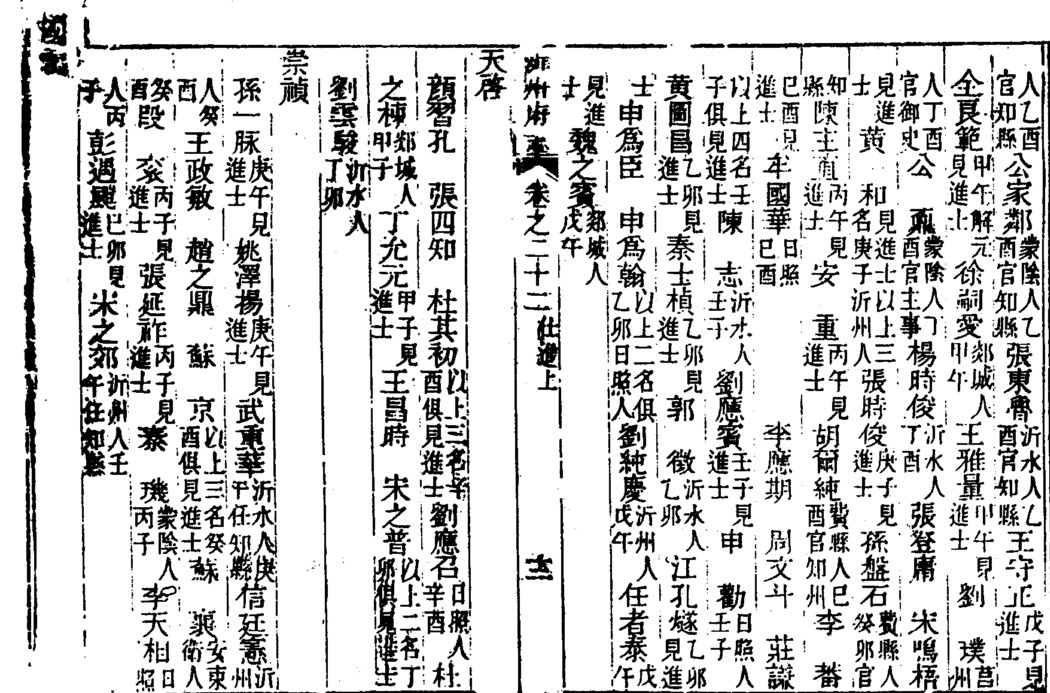 人乙酉官知縣 公家鄰 蒙陰人乙酉官知縣 張東魯 沂水人乙酉官知縣 王守正 戊子見進士
全良範 甲午解元見進士 徐嗣愛 郯城人甲午 王雅量 甲午見進士 劉 璞 莒州
人丁酉官御史 公 鼐 蒙陰人丁酉官主事 楊時俊 沂水人丁酉 張登庸 宋鳴梧
見進士 黃 和 見進士以上三名庚子沂州人 張時俊 庚子見進士 孫盤石 費縣人癸卯官
知縣 陳主直 丙午見進士 安 重 丙午見進士 胡爾純 費縣人己酉官知州 李 蕃
己酉見進士 牟國華 日照己酉 李應期 周文斗 莊謙
以上四名壬子俱見進士 陳 志 沂水人壬子 劉應賓 壬子見進士 申 勸 日照人壬子
黃圖昌 乙卯見進士 秦士楨 乙卯見進士 郭 徵 沂水人乙卯 江孔燧 乙卯見進
士 申為臣 申為翰 以上二名俱乙卯日照人 劉純慶 沂州人戊午 任者泰 戊午
見進士 魏之賓 郯城人戊午
沂州府志 卷之二十二 仕進上 十二
天啓
顏習孔 張四知 杜其初 以上三名辛酉俱見進士 劉應召 日照人辛酉 杜
之棟 郯城人甲子 丁允元 甲子見進士 王昌時 宋之普 以上二名丁卯俱見進士
劉雲駿 沂水人丁卯
崇禎
孫一脉 庚午見進士 姚澤揚 庚午見進士 武重華 沂水人庚午任知縣 信廷憲 沂州
人癸酉 王政敏 趙之鼎 蘇 京 以上三名癸酉俱見進士 蘇 襄 安東衛人
癸酉 段 袞 丙子見進士 張延祚 丙子見進士 秦 璣 蒙陰人丙子 李天相 日照
人丙子 彭遇 己卯見進士 宋之郊 沂州人壬午任知縣